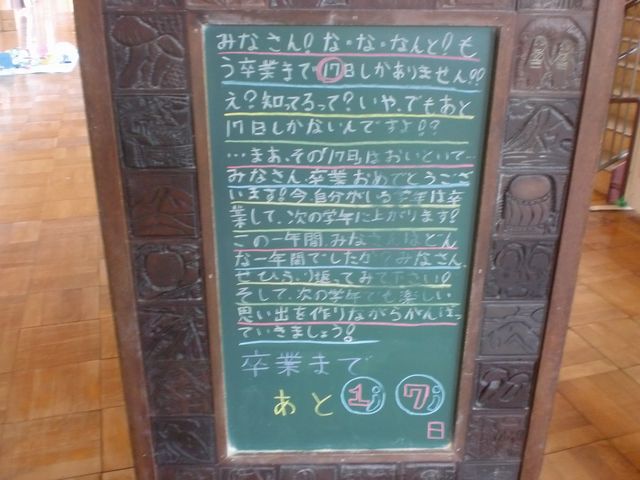 みなさん!な・な・なんと!も
う卒業まで17日しかありません!!
え?知ってるって?いや、でもあと
17日しかないんですよ!?
…まあ、その17日はおいといて
みなさん、卒業おめでとうござ
います!今、自分がいる学年は卒
業して、次の学年に上がります!
この一年間、みなさんはどん
な一年間でしたか?みなさん、
ぜひふり返ってみて下さい!
そして、次の学年でも楽しい
思い出を作りながらがんばっ
ていきましょう!
卒業まで
あと17
日